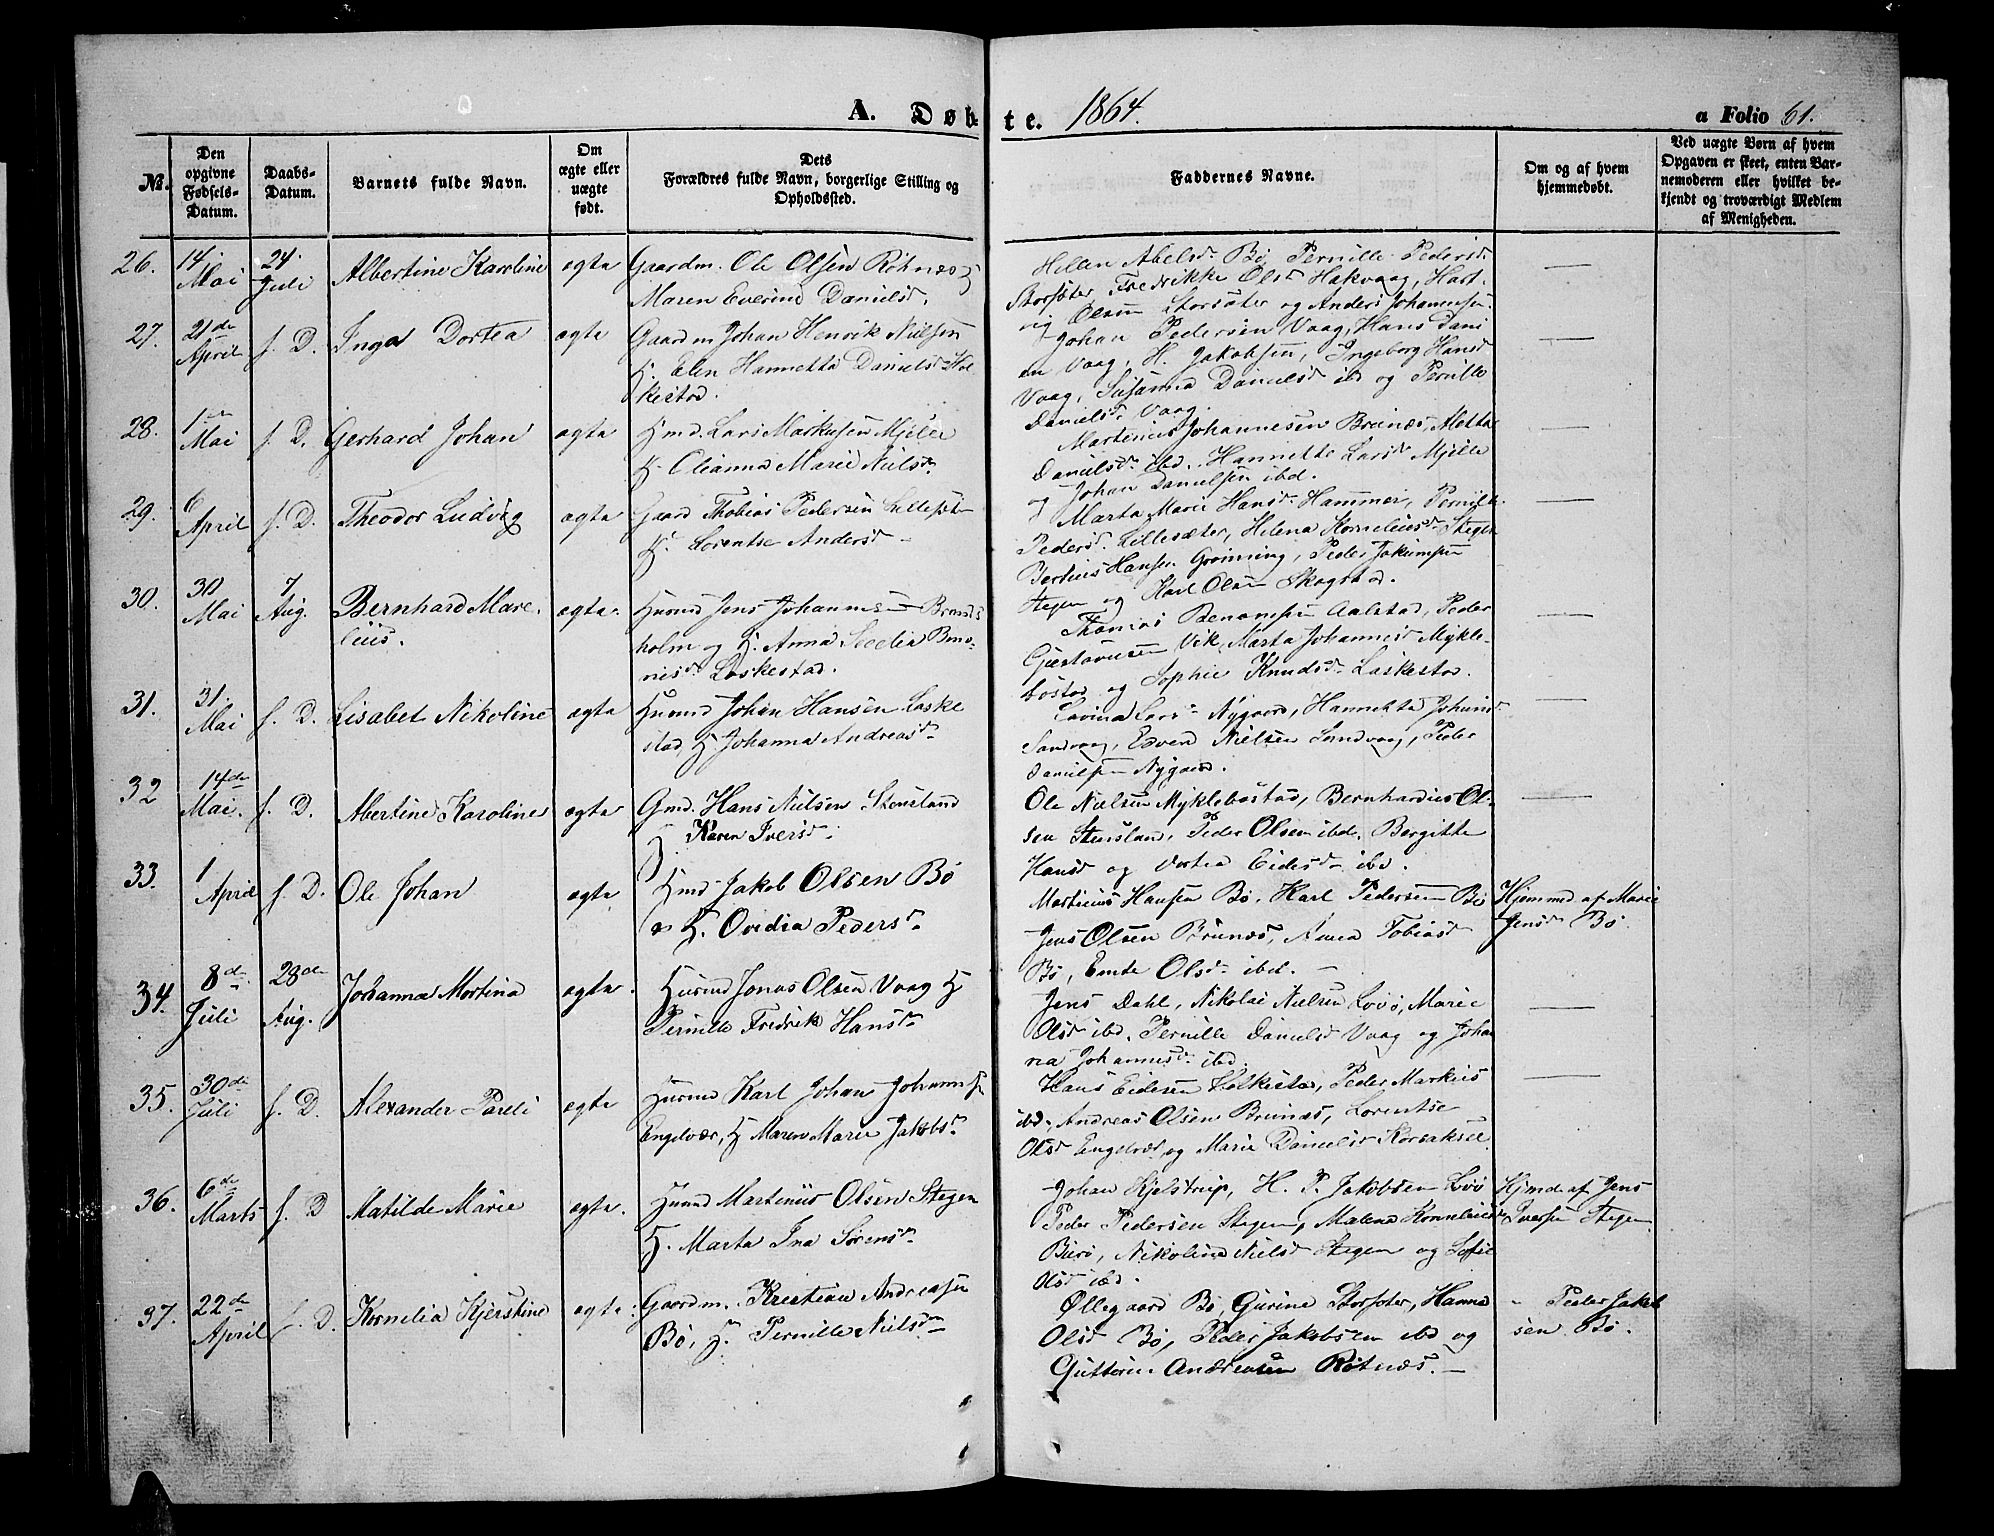 A. Døbte. 1864.
a Folio 61.
No.
Den opgivne Fødsels-Datum.
Daabs-Datum.
Barnets fulde Navn.
Om ægte eller uægte født.
Dets Forældres fulde Navn, borgerlige Stilling og Opholdssted.
Faddernes Navne.
Om og af hvem hjemmedøbt.
Ved uægte Børn af hvem Opgaven er skeet, enten Barnemoderen eller hvilket bekjendt og troværdigt Medlem af Menigheden.
26. 14. Mai 24. Juli Albertine Karoline ægte
Gaardm. Ole Olsen Röhnæs og
Maren Everine Danielsd.
Hellen Abelsd. Bö, Pernille Pedersd.
Storsöter Fredrikke Olsd Hakvaag, Hart-
vig Olsen Storsöter og Anders Johannesen
27. 21de April s. D. Inga Dortea ægte
Gaardm Johan Henrik Nielsen
H. Elen Hannetta Danielsd Hol
kestad.
Johan Pedersen Vaag, Hans Dani
en Vaag, H. Jakobsen, Ingeborg Hansd
Vaag, Susanna Danielsd ibd og Pernille
Danielsd. Vaag.
28. 1ste Mai s. D. Gerhard Johan ægte
Hmd. Lars Markusen Mjelle
H. Olianna Marie Nielsd
Martinus Johannesen Brunæs, Metta
Danielsd ibd. Hannette Larsd Mjelle
og Johan Danielsen ibd.
29. 6 April s. D. Theodor Ludvig ægte
Gaard Thobias Pedersen Lillesöt
H. Lorentse Andersd
Marta Marie Hansd. Hammer, Pernille
Pedersd. Lillesæter, Helena Korneliusd Stegen
Bertius Hansen Gröinning, Peder Jakimsen
Stegen og Karl Olsen Skogstad.
30. 30 Mai 7 Aug. Bernhard Mare-
lius. ægte
Husmd Jens Johannesen Brænds
holm og H. Anna Secelia Bmo-
nisd Laskestad.
Thomas Benonisen Aalstad, Peder
Gustavusen Vik, Marta Johannesd Mykle-
bostad og Sophie Knudsd Laskestad.
31. 31. Mai s. D. Lisabet Nikoline ægte
Husmd Johan Hansen Laske
stad, H. Johanna Andreasd
Lavina Larsd Nygaard, Hannetta Johansd
Sandvaag, Edverd Nielsen Sandvaag, Peder
Danielsen Nygaard.
32 14de Mai. s. D. Albertine Karoline ægte
Gmd. Hans Nielsen Stensland
H. Karen Iversd
Ole Nielsen Myklebostad, Bernhardius Ol-
sen Stensland, Peder Olsen ibd. Bergitte
Hansd og Dortea Eidesd ibd.
33. 1 April s. D. Ole Johan ægte
Hmd Jakob Olsen Bö
H. Ovidia Pedersd
Martinus Hansen Bö, Karl Pedersen Bö
Jens Olsen Brunæs, Anna Tobiasd
Bö, Emte Olsd ibd.
Hjemmed af Marie
Jensd Bö.
34. 8de Juli 28de Aug. Johanna Martina ægte.
Husmd Jonas Olsen Vaag H
Pernille Fredrik Hansd
Jens Dahl, Nikolai Nielsen Lövö, Marie
Olsd ibd. Pernille Danielsd Vaag og Johan
na Johannesd ibd.
35. 30de Juli s. D. Alexander Pareli ægte
Husmd Karl Johan Johannes
Engelvær, H Maren Marie Jakobsd
Hans Eidesen Holkestad, Peder Markus
ibd, Andreas Olsen Brunæs, Lorentse
Olsd Engelvær og Marie Danielsd Korsaksel
36. 6de Marts s. D Matilde Marie ægte.
Husmd Martinus Olsen Stegen
H. Marta Ina Sörensd
Johan Kjelstrup, H. P. Jakobsen Lövö
Peder Pedersen Stegen, Malena Korneliusd
Burö, Nikolina Nielsd Stegen og Sofie
Olsd ibd.
Hjmd af Jens
Iversen Stegen
37. 22de April s. D. Kornelia Kjerstine ægte
Gaardm. Kristian Andreasen
Bö, H. Pernille Nielsd
Öllegaard Bö, Gurine Storsöter, Hanna
Olsd Bö, Peder Jakobsen ibd og
Gutterm Andreasen Rötnæs.
" Peder Jakob
sen Bö.